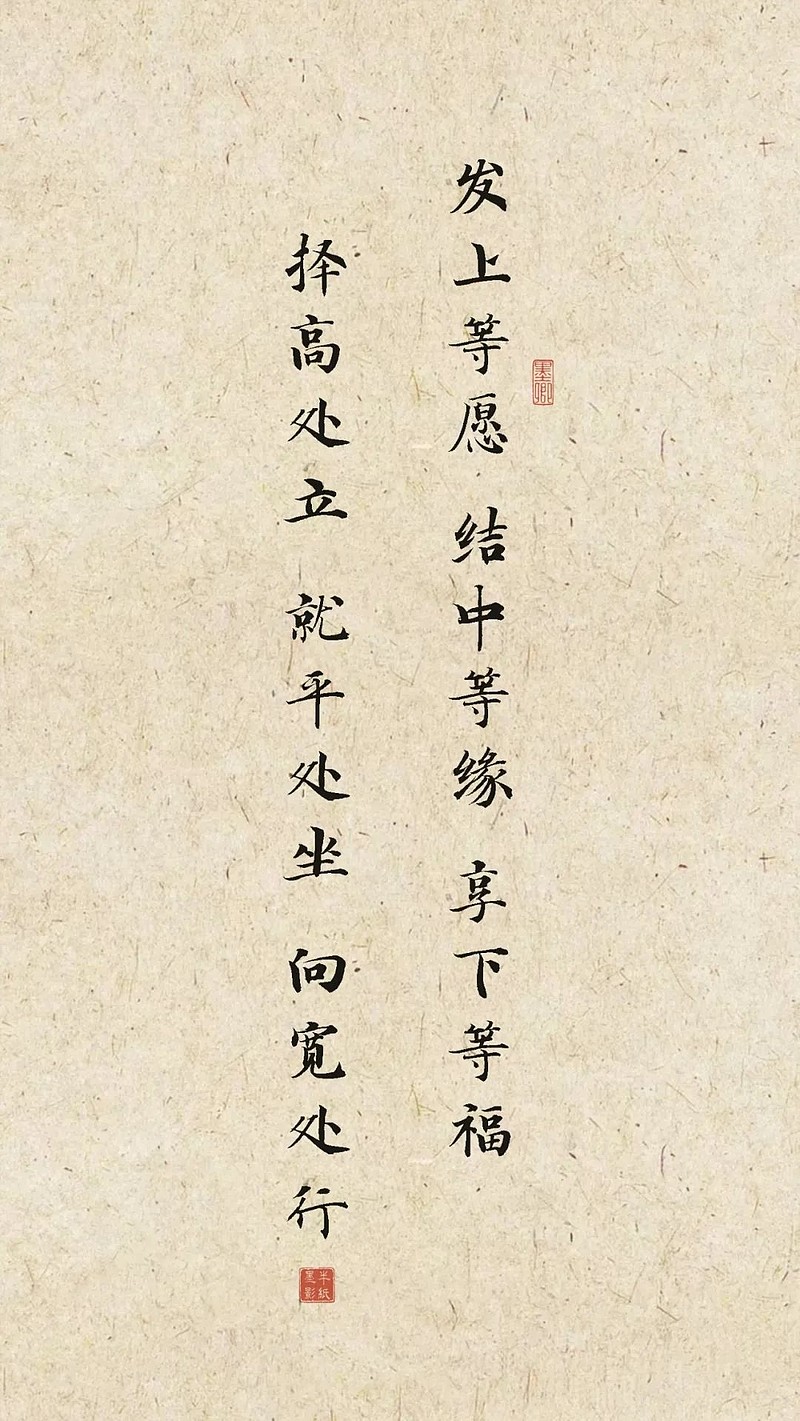 发上等愿 结中等缘 享下等福
墨卿
择高处立 就平处坐 向宽处行
半纸墨影